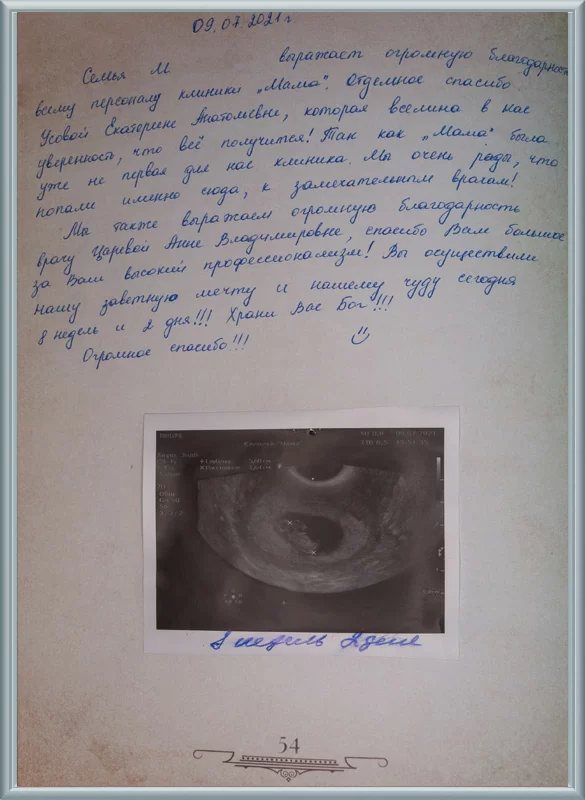 09.07.2021 г
Семья М. выражает огромную благодарность
всему персоналу клиники „Мама". Отдельное спасибо
Усовой Екатерине Анатольевне, которая вселила в нас
уверенность, что всё получится! Так как „Мама" была
уже не первая для нас клиника. Мы очень рады, что
попали именно сюда, к замечательным врачам!
Мы также выражаем огромную благодарность
врачу Царевой Анне Владимировне, спасибо Вам большое
за Ваш высокий профессионализм! Вы осуществили
нашу заветную мечту и нашему чуду сегодня
8 недель и 2 дня!!! Храни Вас Бог!!!
Огромное спасибо!!!
PHILIPS
8 недель 2 дня
54